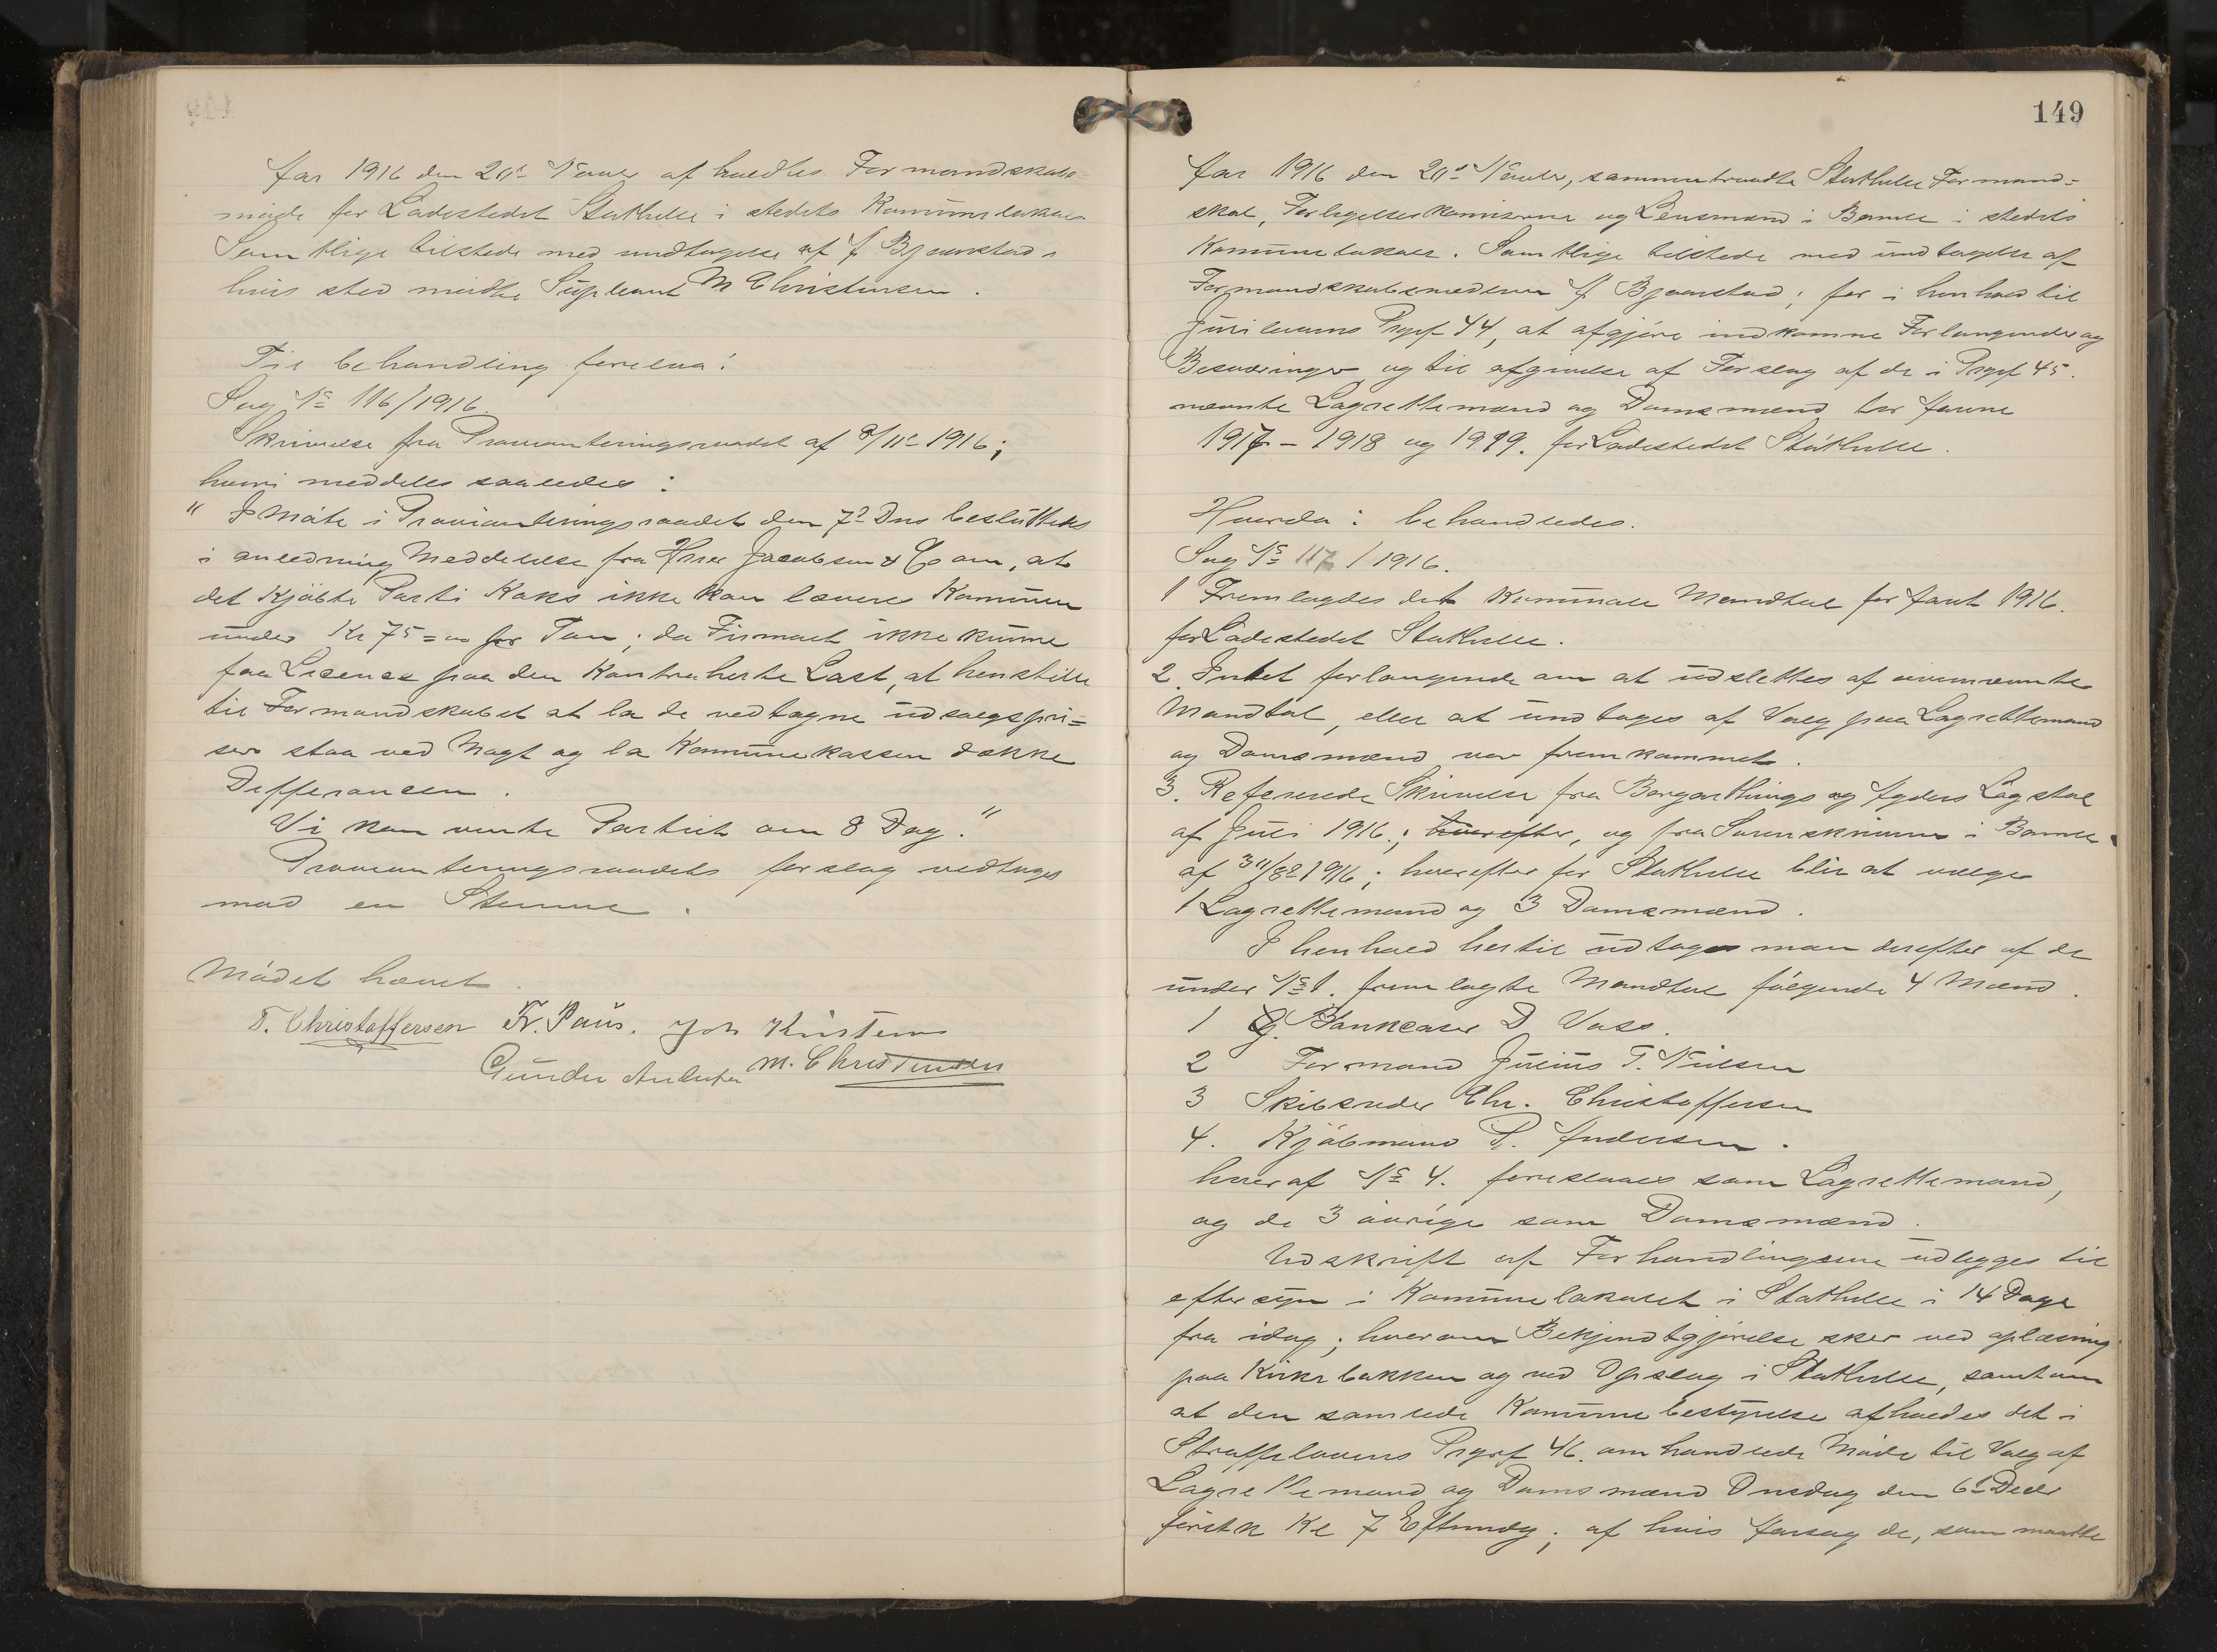 Aar 1916 den 20de Novbr afholdtes Formandskabs-
møde for Ladestedet Stathelle i stedets Kommunelokale
Samtlige tilstede med undtagelse af J Bjaarstad i
hvis sted mødte Supleant M Christensen.
Til behandling forelaa:
Sag No 116/1916.
Skrivelse fra Provianteringsraadet af 8/11- 1916;
hvori meddeles saaledes:
" I Møte i Provianteringsraadet den 7de Dns besluttedes
i anledning Meddelelse fra Hrrer Jacobsen & Co om, at
det Kjøbte Parti Koks ikke kan leveres Kommunen
under Kr 75=00 per Ton; da Firmaet ikke kunne
faa Licence paa den Kontraherte Last, at henstille
til Formandskabet at la de vedtagne udsalgspri=
ser staa ved Magt og la Kommunekassen dække
Defferancen.
Vi kan vente Partiet om 8 Dag."
Provianteringsraadets forslag vedtages
mod en Stemme.
Mødet hævet.
T. Christoffersen Fr. Paus. Joh Kirstens
Gunder M. Christensen
149
Aar 1916 den 20de Novbr, sammentraadte Stathelle Formand=
skab, Forligelseskomisærene og Lensmand i Bamle i stedets
Kommunelokale. Samtlige tilstede med undtagelse af
Formandskabsmedlem J Bjaarstad; for i henhold til
Jurilovens Prgrf 44, at afgjøre indkomne Forlangender og
Besværinger og til afgivelse af Forslag af de i Prgrf 45.
nævnte Lagrettemænd og Domsmænd for Aarene
1917 - 1918 og 1919. for Ladestedet Stathelle.
Hvorda: behandledes.
Sag No 117 / 1916.
1 Fremlagdes det Kommunale Mandtal for Aaret 1916.
for Ladestedet Stathelle.
2. Intet forlangende om at udslettes af ovennævnte
Mandtal, eller at undtages af Valg paa Lagrettemand
og Domsmænd var fremkommet.
3. Refererede Skrivelse fra Borgarthings og Agders Lagstol
af Juli 1916.; hvorefter, og fra Sorenskriveren i Bamle
af 30/8 1916; hvorefter for Stathelle blir at vælge
1 Lagrettemand og 3 Domsmænd.
I henhold hertil udtages man derefter af de
under No 1. fremlagte Mandtal følgende 4 Mænd.
1 Bankcaser D Vass.
2 Formand Julius T. Nielsen
3 Skibsreder Chr. Christoffersen
4. Kjøbmand P. Andersen.
hvoraf No 4. foreslaaes som Lagrettemand,
og de 3 øvrige som Domsmænd.
Udskrift af Forhandlingerne udlegges til
eftersyn i Kommunelokalet i Stathelle i 14 Dage
fra idag; hvorom Bekjendtgjørelse sker ved oplæsning
paa Kirkebakken og ved Opslag i Stathelle, samt om
at den samlede Kommunebestyrelse afholdes det i
Straffelovens Prgrf 46. omhandlede Møde til Valg af
Lagrettemand og Domsmænd Onsdag den 6te Decbr
førstk Kl 7 Eftmdg; af hvis Aarsag de, som maatte